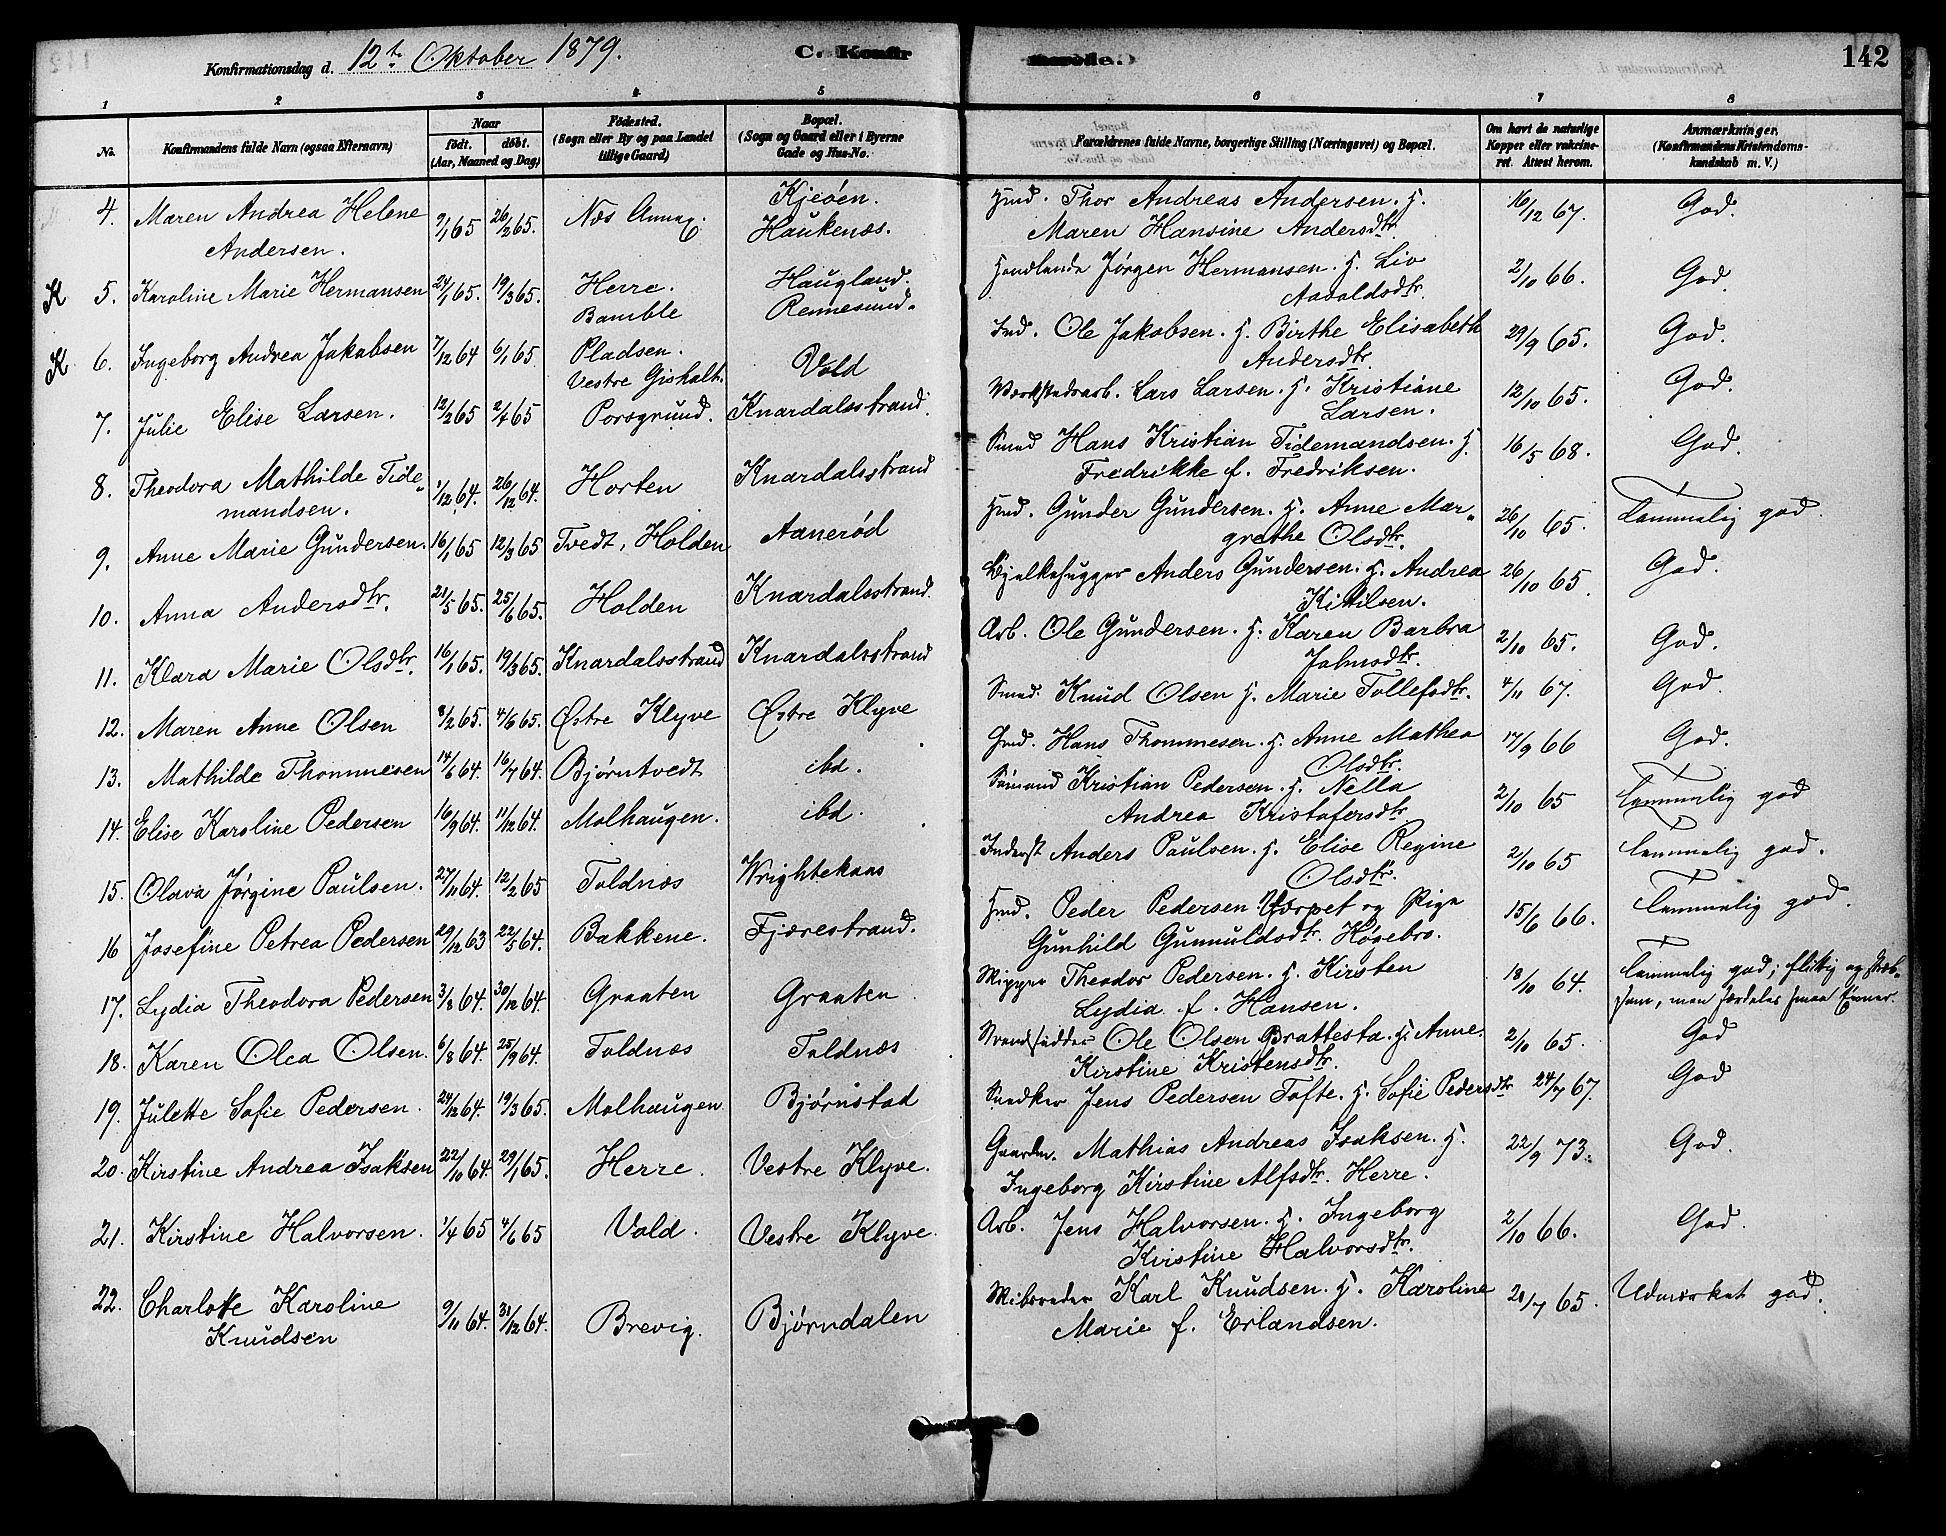 Konfirmationsdag d. 12te Oktober 1879. C. Konfir
merede.) 142
1 2 3 4 5 6 7 8
No. Konfirmandens fulde Navn (ogsaa Efternavn) Naar født. døbt. (Aar, Maaned og Dag) Fødested. (Sogn eller By og paa Landet tillige Gaard) Bopæl. (Sogn og Gaard eller i Byerne Gade og Hus-No. Forældrenes fulde Navne, borgerlige Stilling (Næringsvei) og Bopæl. Om havt de naturlige Kopper eller vakcineret. Attest herom. Anmærkninger. (Konfirmandens Kristendomskundskab m. V.)
4. Maren Andrea Helene 9/1 65 26/2 65. Næs Annax. Kjeøen. Hmd. Thor Andreas Andersen. H. 16/12 67. God.
Andersen. Haukenæs. Maren Hansine Andersdtr.
K 5. Karoline Marie Hermansen 24/1 65. 19/3 65. Herre. Haugland. Jørgen Hermansen. H. Liv 2/10 66. God.
Bamble Rennesund. Aavaldsdtr.
K 6. Ingeborg Andrea Jakobsen 7/12 64 6/1 65 Pladsen. Vold Ind. Ole Jakobsen. H. Birthe Elisabeth 29/9 65. God.
Vestre Gisholt. Andersdtr.
7. Julie Elise Larsen. 12/2 65 2/4 65 Porsgrund. Knardalsstrand. Værkstedsarb. Lars Larsen. H. Kristiane 12/10 65. God.
Larsen.
8. Theodora Mathilde Tide- 1/12 64. 26/12 64. Horten Knardalsstrand Smed Hans Kristian Tidemandsen. H. 16/5 68. God.
mandsen. Fredrikke f. Fredriksen.
9. Anne Marie Gundersen. 16/1 65 12/3 65 Tvedt, Holden Aanerød Hmd. Gunder Gundersen. H. Anne Mar- 26/10 65. Temmelig god.
grethe Olsdtr.
10. Anna Andersdtr. 21/5 65. 25/6 65. Holden Knardalsstrand. Bjelkehugger Anders Gundersen. H. Andrea 26/10 65 God.
Kittilsen.
11. Klara Marie Olsdtr. 16/1 65. 19/3 65. Knardalsstrand Knardalsstrand Arb. Ole Gundersen. H. Karen Barbra 2/10 65. God.
Johnsdtr.
12. Maren Anne Olsen 8/2 65. 4/6 65. Østre Klyve Østre Klyve Smed. Knud Olsen H. Marie Tollefsdtr. 4/11 67. God.
13. Mathilde Thommesen 14/6 64. 16/7 64. Bjørntvedt ibd. Gmd. Hans Thommesen. H. Anne Mathea 17/9 66 God.
Olsdtr.
14. Elise Karoline Pedersen 16/9 64. 11/12 64. Molhaugen. ibd. Sømand Kristian Pedersen. H. Nella 2/10 65 Temmelig god
Andrea Kristofersdtr.
15. Olava Jørgine Paulsen. 27/11 64. 12/2 65 Toldnæs Wrightekaas Inderst Anders Paulsen. H. Elise Regine 2/10 65 Temmelig god.
Olsdtr.
16 Josefine Petrea Pedersen 29/12 63 22/5 64. Bakkene. Fjærestrand. Hmd. Peder Pedersen og Pige 15/6 66. Temmelig god.
Gunhild Gunnuldsdtr. Høgebro.
17. Lydia Theodora Pedersen 3/8 64. 30/12 64. Graaten Graaten Skipper Theodor Pedersen. H. Kirsten 18/10 64. Temmelig god; flittig og stræb-
Lydia f. Hansen. som, men
18. Karen Olea Olsen. 6/8 64. 25/9 64. Toldnæs Toldnæs Strandsidder Ole Olsen Brattesta. H. Anne 2/10 65. God
Kirstine Kristensdtr.
19. Julette Sofie Pedersen. 24/12 64. 19/3 65. Molhaugen Bjørnstad Snedker Jens Pedersen Tofte. H. Sofie Pedersdtr 24/7 67. God
20. Kirstine Andrea Isaksen 22/10 64. 29/1 65. Herre. Vestre Klyve. Gaardm. Mathias Andreas Isaksen. H. 22/9 73. God.
Ingeborg Kirstine Alfsdtr. Herre.
21. Kirstine Halvorsen. 1/4 65 4/6 65 Vold. Vestre Klyve. Arb. Jens Halvorsen. H. Ingeborg 2/10 66. God.
Kirstine Halvorsdtr.
22. Charlotte Karoline 9/11 64. 31/12 64. Brevig. Bjørndalen Karl Knudsen. H. Karoline 20/7 65. Udmærket god.
Knudsen Marie f. Erlandsen.